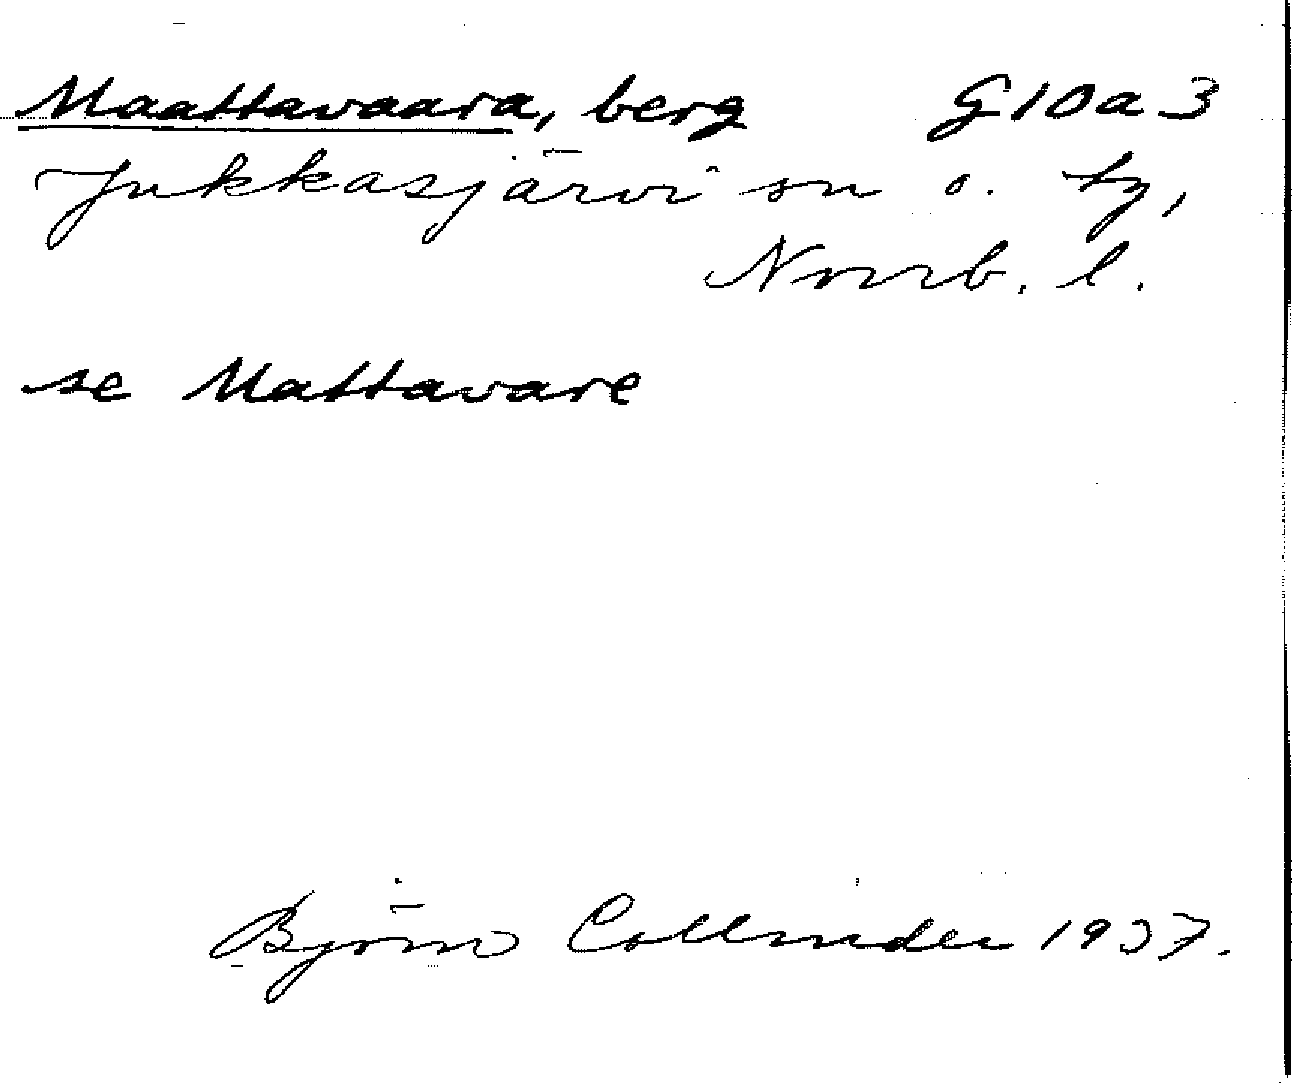 Maattavaara, berg G10a3
Jukkasjärvi sn o. tg,
Norrb. l.
se Mattavare
Björn Collinder 1937.